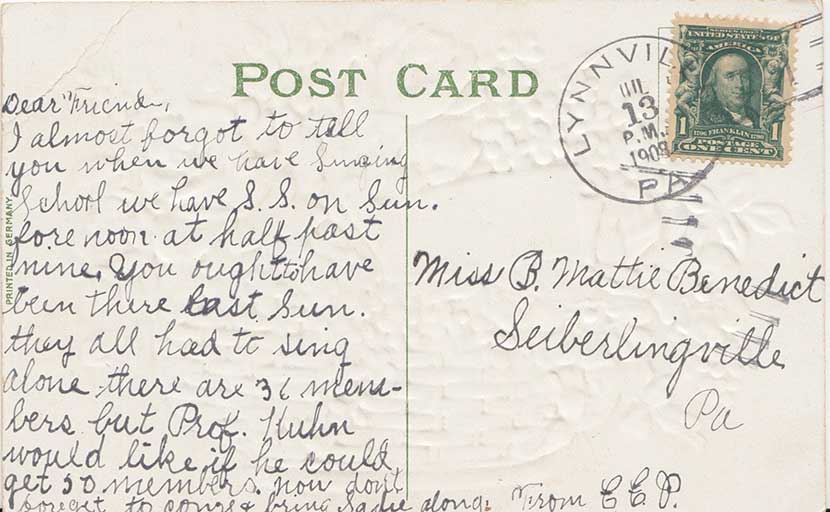 POST CARD
Dear Friend,
I almost forgot to tell
you when we have Singing
School we have S. S. on Sun.
fore noon at half past
nine. You ought to have
been there last Sun.
they all had to sing
alone there are 36 mem-
bers but Prof. Kuhn
would like if he could
get 50 members now don't
forget to come & bring Sadie along. From E. E. P.
PRINTED IN GERMANY
LYNNVIL
JUL
13
P.M.
1908
PA
SERIES 1902
UNITED STATES OF
AMERICA
1706 FRANKLIN 1790
1 POSTAGE 1
ONE CENT
Miss B. Mattie Benedict
Seiberlingville
Pa